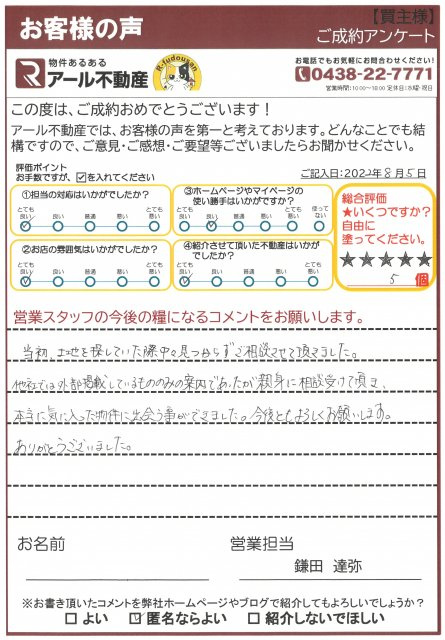 お客様の声
【買主様】
ご成約アンケート
物件あるある
アール不動産
R-fudousan
お電話でもお気軽にお問合わせください!
0438-22-7771
営業時間:10:00〜18:00 定休日(水曜・祝日)
この度は、ご成約おめでとうございます!
アール不動産では、お客様の声を第一と考えております。どんなことでも結
構ですので、ご意見・ご感想・ご要望等ございましたらお聞かせください。
評価ポイント
お手数ですが、☑を入れてください
ご記入日:2024年8月5日
①担当の対応はいかがでしたか?
とても良い 良い 普通 悪い とても悪い
③ホームページやマイページの
使い勝手はいかがですか?
とても良い 良い 普通 悪い 使ってない
②お店の雰囲気はいかがでしたか?
とても良い 良い 普通 悪い とても悪い
④紹介させて頂いた不動産はいかが
でしたか?
とても良い 良い 普通 悪い とても悪い
総合評価
★いくつですか?
自由に
塗ってください。
★★★★★
5個
営業スタッフの今後の糧になるコメントをお願いします。
当初、土地を探していた際中々見つからずご相談させて頂きました。
他社では外部掲載しているもののみの案内であったが親身に相談受けて頂き、
本当に気に入った物件に出会う事ができました。今後ともよろしくお願いします。
ありがとうございました。
お名前
営業担当
鎌田 達弥
※お書き頂いたコメントを弊社ホームページやブログで紹介してもよろしいでしょうか?
☐ よい ☑ 匿名ならよい ☐ 紹介しないでほしい